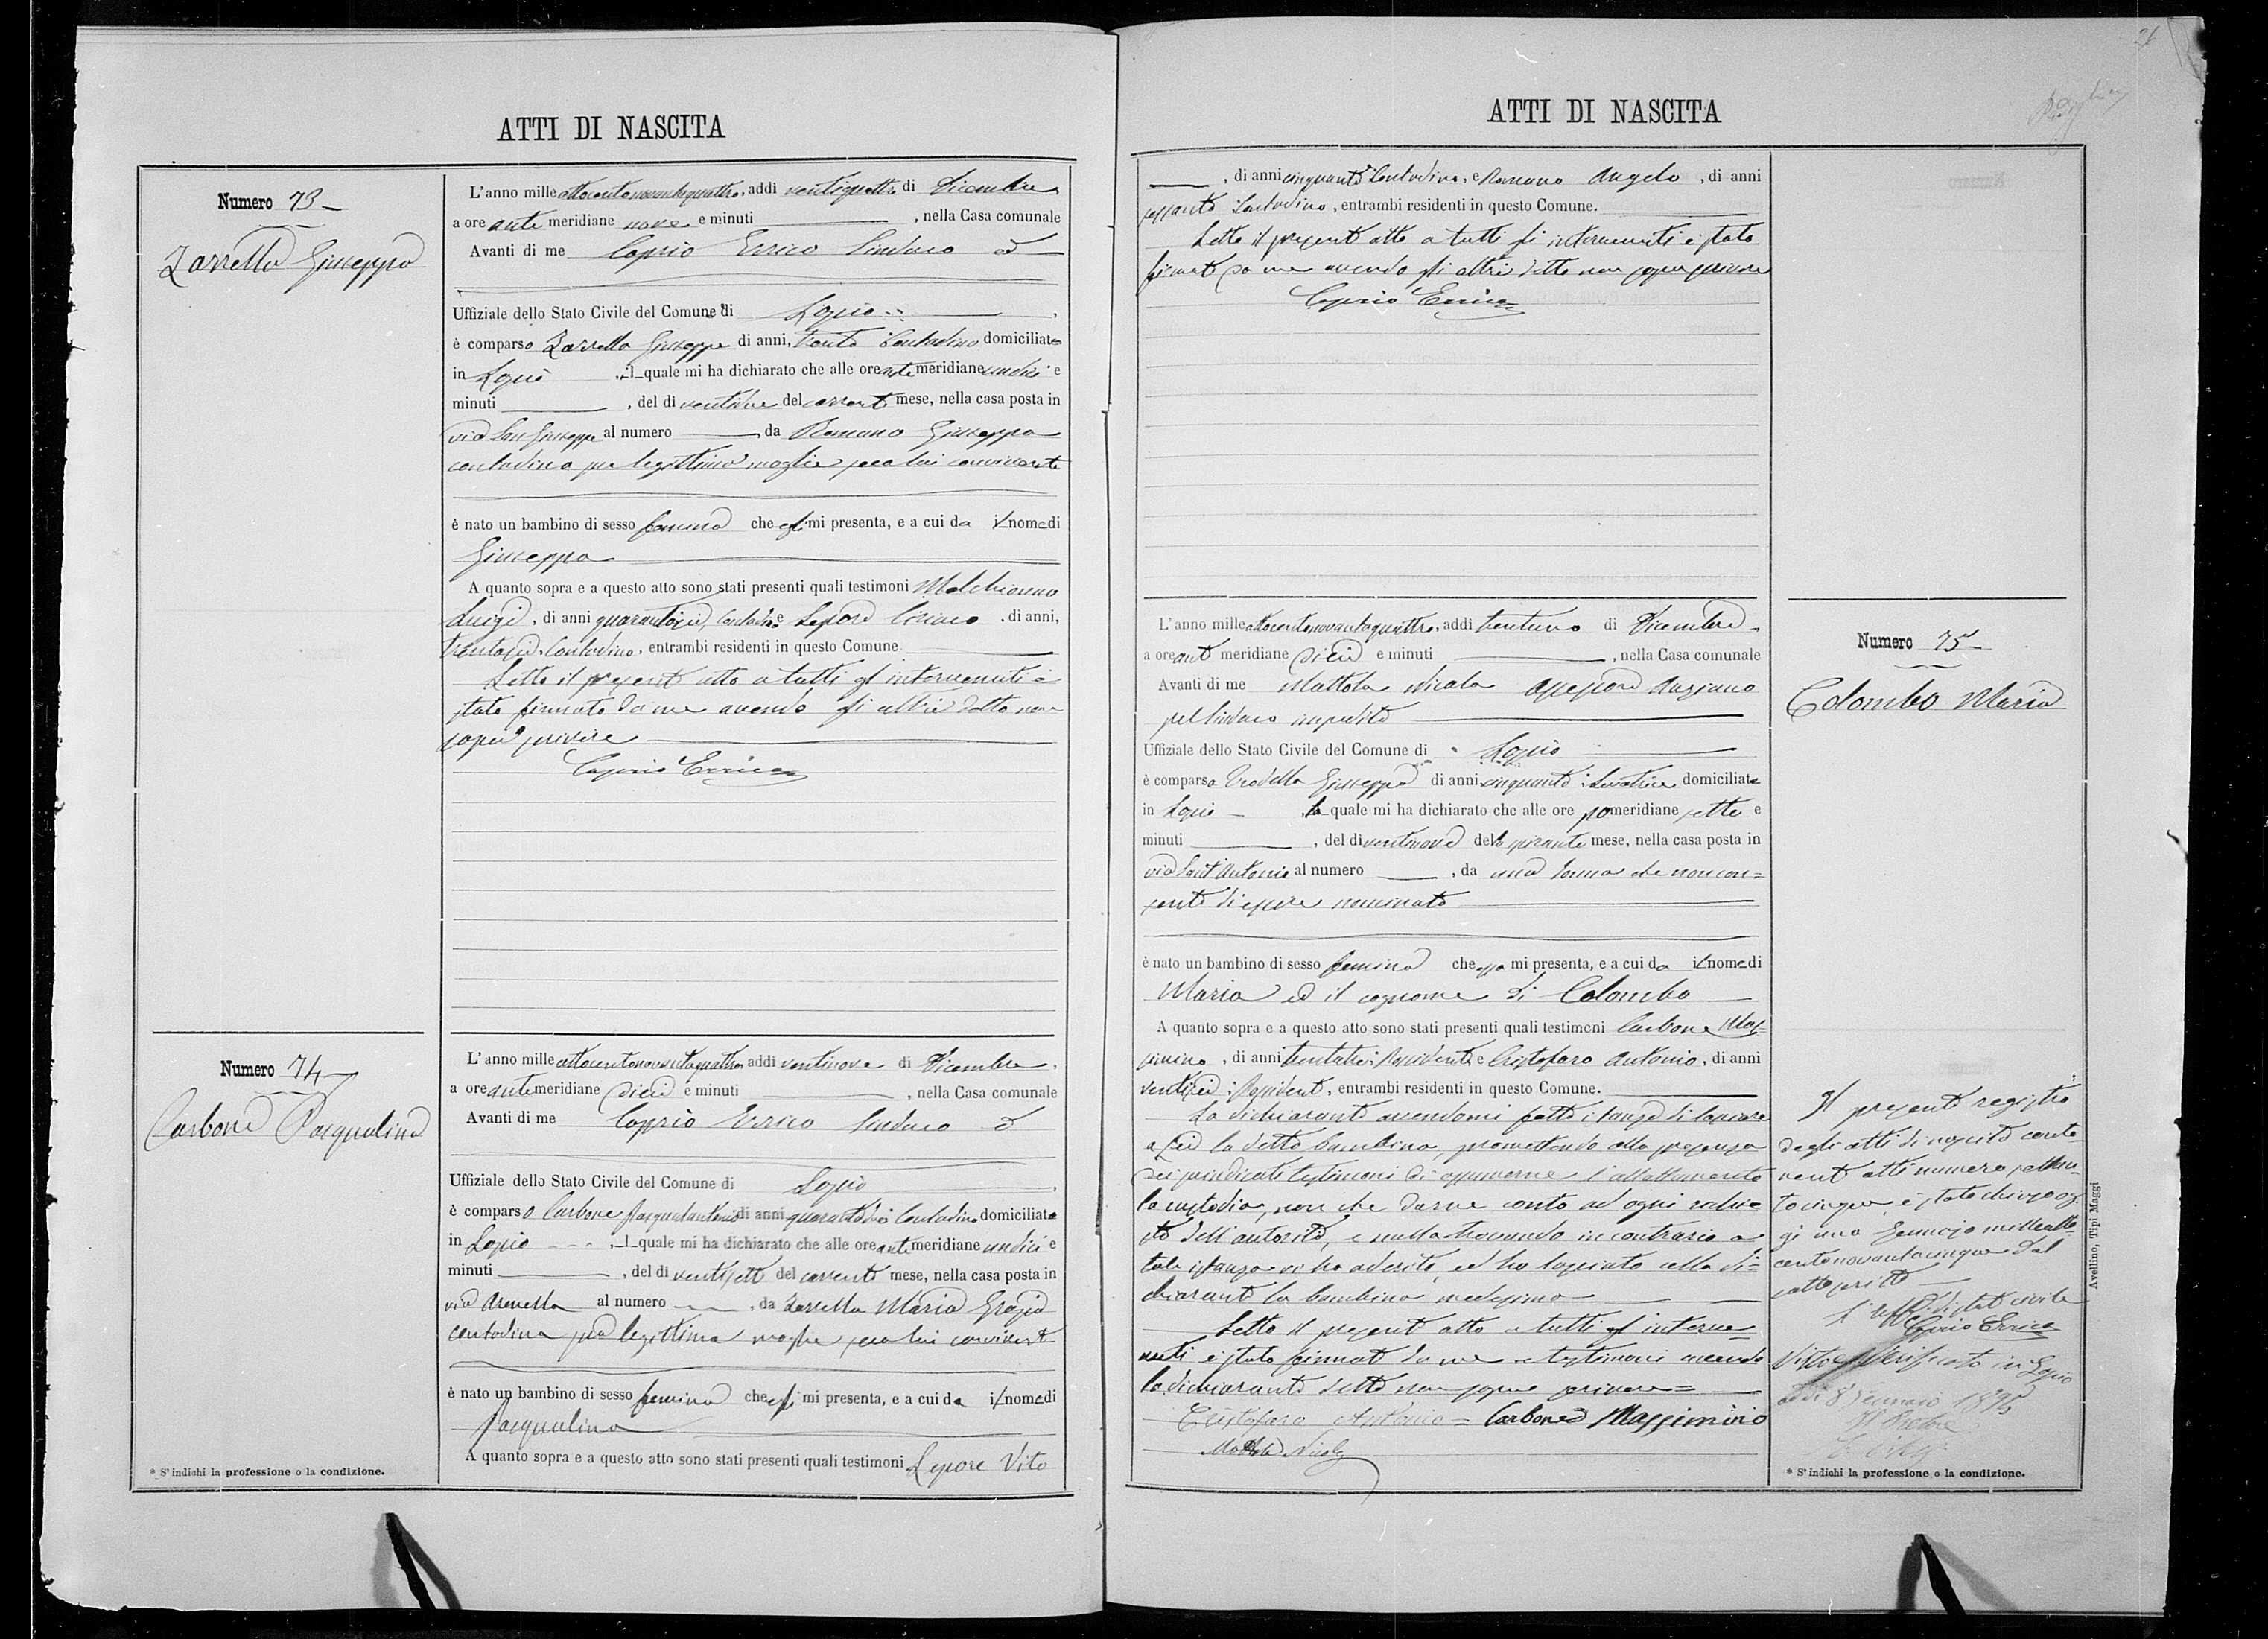 ATTI DI NASCITA
Numero 73
Zarrella Giuseppa
L'anno mille ottocentonovantaquattro, addi ventiquattro di Dicembre
a ore ante meridiane nove e minuti , nella Casa comunale
Avanti di me Caprio Errico Sindaco ed
Uffiziale dello Stato Civile del Comune di Lapio
è comparso Zarrella Giuseppe di anni, trenta Contadino domiciliato
in Lapio , il quale mi ha dichiarato che alle ore ante meridiane undici e
minuti , del di ventidue del corrente mese, nella casa posta in
via San Giuseppe al numero , da Romano Giuseppa
contadina sua legittima moglie seco lui convivente
è nato un bambino di sesso femina che egli mi presenta, e a cui da il nome di
Giuseppa
A quanto sopra e a questo atto sono stati presenti quali testimoni Melchionna
Luigi, di anni Contadino e Lepore Ciriaco . di anni,
trentasei, Contadino, entrambi residenti in questo Comune
Letto il presente atto a tutti gl'intervenuti è
stato firmato da me avendo gli altri detto non
saper scrivere
Caprio Errico
Numero 74
Carbone Pasqualina
L'anno mille ottocentonovantaquattro addi ventinove di Dicembre
a ore ante meridiane dieci e minuti , nella Casa comunale
Avanti di me Caprio Errico Sindaco ed
Uffiziale dello Stato Civile del Comune di Lapio
è comparso Carbone Pasqualantonio di anni Contadino domiciliato
in Lapio , il quale mi ha dichiarato che alle ore ante meridiane undici e
minuti , del di ventisette del corrente mese, nella casa posta in
via Arenella al numero , da Zarrella Maria Grazia
contadina sua legittima moglie seco lui convivente
è nato un bambino di sesso femina che egli mi presenta, e a cui da il nome di
Pasqualina
A quanto sopra e a questo atto sono stati presenti quali testimoni Lepore Vito
* S'indichi la professione o la condizione.
ATTI DI NASCITA
, di anni cinquanta Contadino, e Romano Angelo , di anni
sessanta Contadino, entrambi residenti in questo Comune.
Letto il presente atto a tutti gli intervenuti è stato
firmato da me avendo gli altri detto non saper scrivere
Caprio Errico
Numero 75
Colombo Maria
L'anno mille ottocentonovantaquattro, addi trentuno di Dicembre
a ore ante meridiane dieci e minuti , nella Casa comunale
Avanti di me Mattola Nicola Assessore Anziano
pel Sindaco impedito
Uffiziale dello Stato Civile del Comune di Lapio
è comparsa Giuseppa di anni cinquanta Levatrice domiciliata
in Lapio , la quale mi ha dichiarato che alle ore pomeridiane sette e
minuti , del di ventinove dello spirante mese, nella casa posta in
via Sant'Antonio al numero , da una donna che non con=
sente di essere nominata
è nato un bambino di sesso femina che essa mi presenta, e a cui da il nome di
Maria ed il cognome di Colombo
A quanto sopra e a questo atto sono stati presenti quali testimoni Carbone Mas=
simino, di anni Possidente e Cristofaro Antonio, di anni
ventisei Possidente, entrambi residenti in questo Comune.
La dichiarante avendomi fatto istanza di lasciare
a lei la detta bambina, promettendo alla presenza
dei suindicati testimoni di assumerne l'allattamento
la custodia, non che darne conto ad ogni richie
sta dell'autorità, e nulla trovando in contrario a
tale istanza vi ho aderito, ed ho lasciato alla di=
chiarante la bambina medesima
Letto il presente atto a tutti gl'interve=
nuti è stato firmato da me e testimoni avendo
la dichiarante detto non sapere scrivere
Cristofaro Antonio = Carbone Massimino
Mattola Nicola
Il presente registro
degli atti di nascita conte
nente atti numero settan=
tacinque è stato chiuso og
gi uno Gennaio milleotto
centonovantacinque dal
sottoscritto
L'Uff. di stato civile
Caprio Errico
Visto e Verificato in Lapio
addi 8 Gennaio 1895
Il Pretore
* S'indichi la professione o la condizione.
Avellino, Tipi Maggi